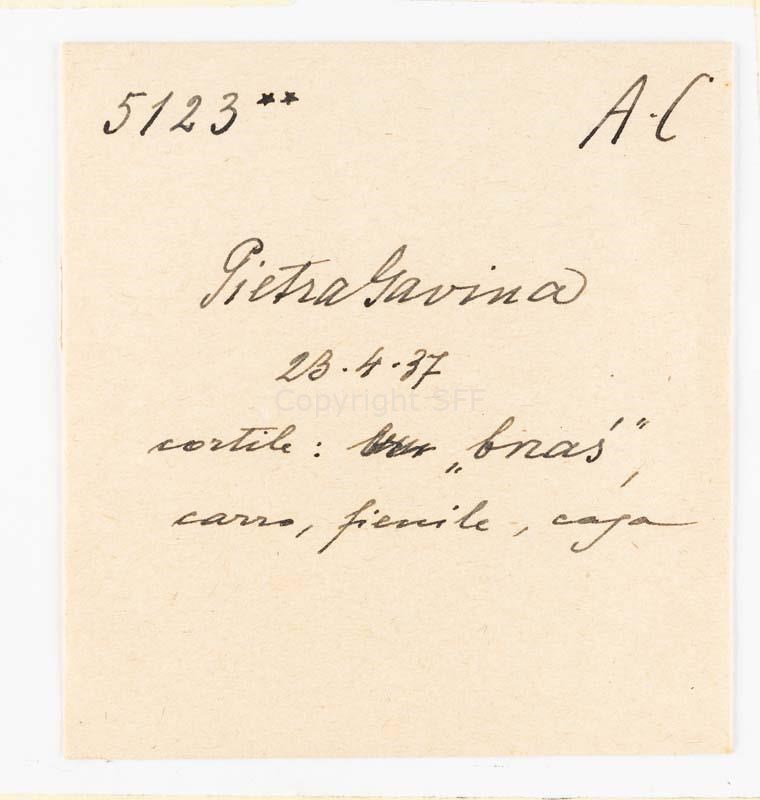 5123** A.C
PietraGavina
23.4.37
Copyright SFF
cortile: „braś”,
carro, fienile, casa